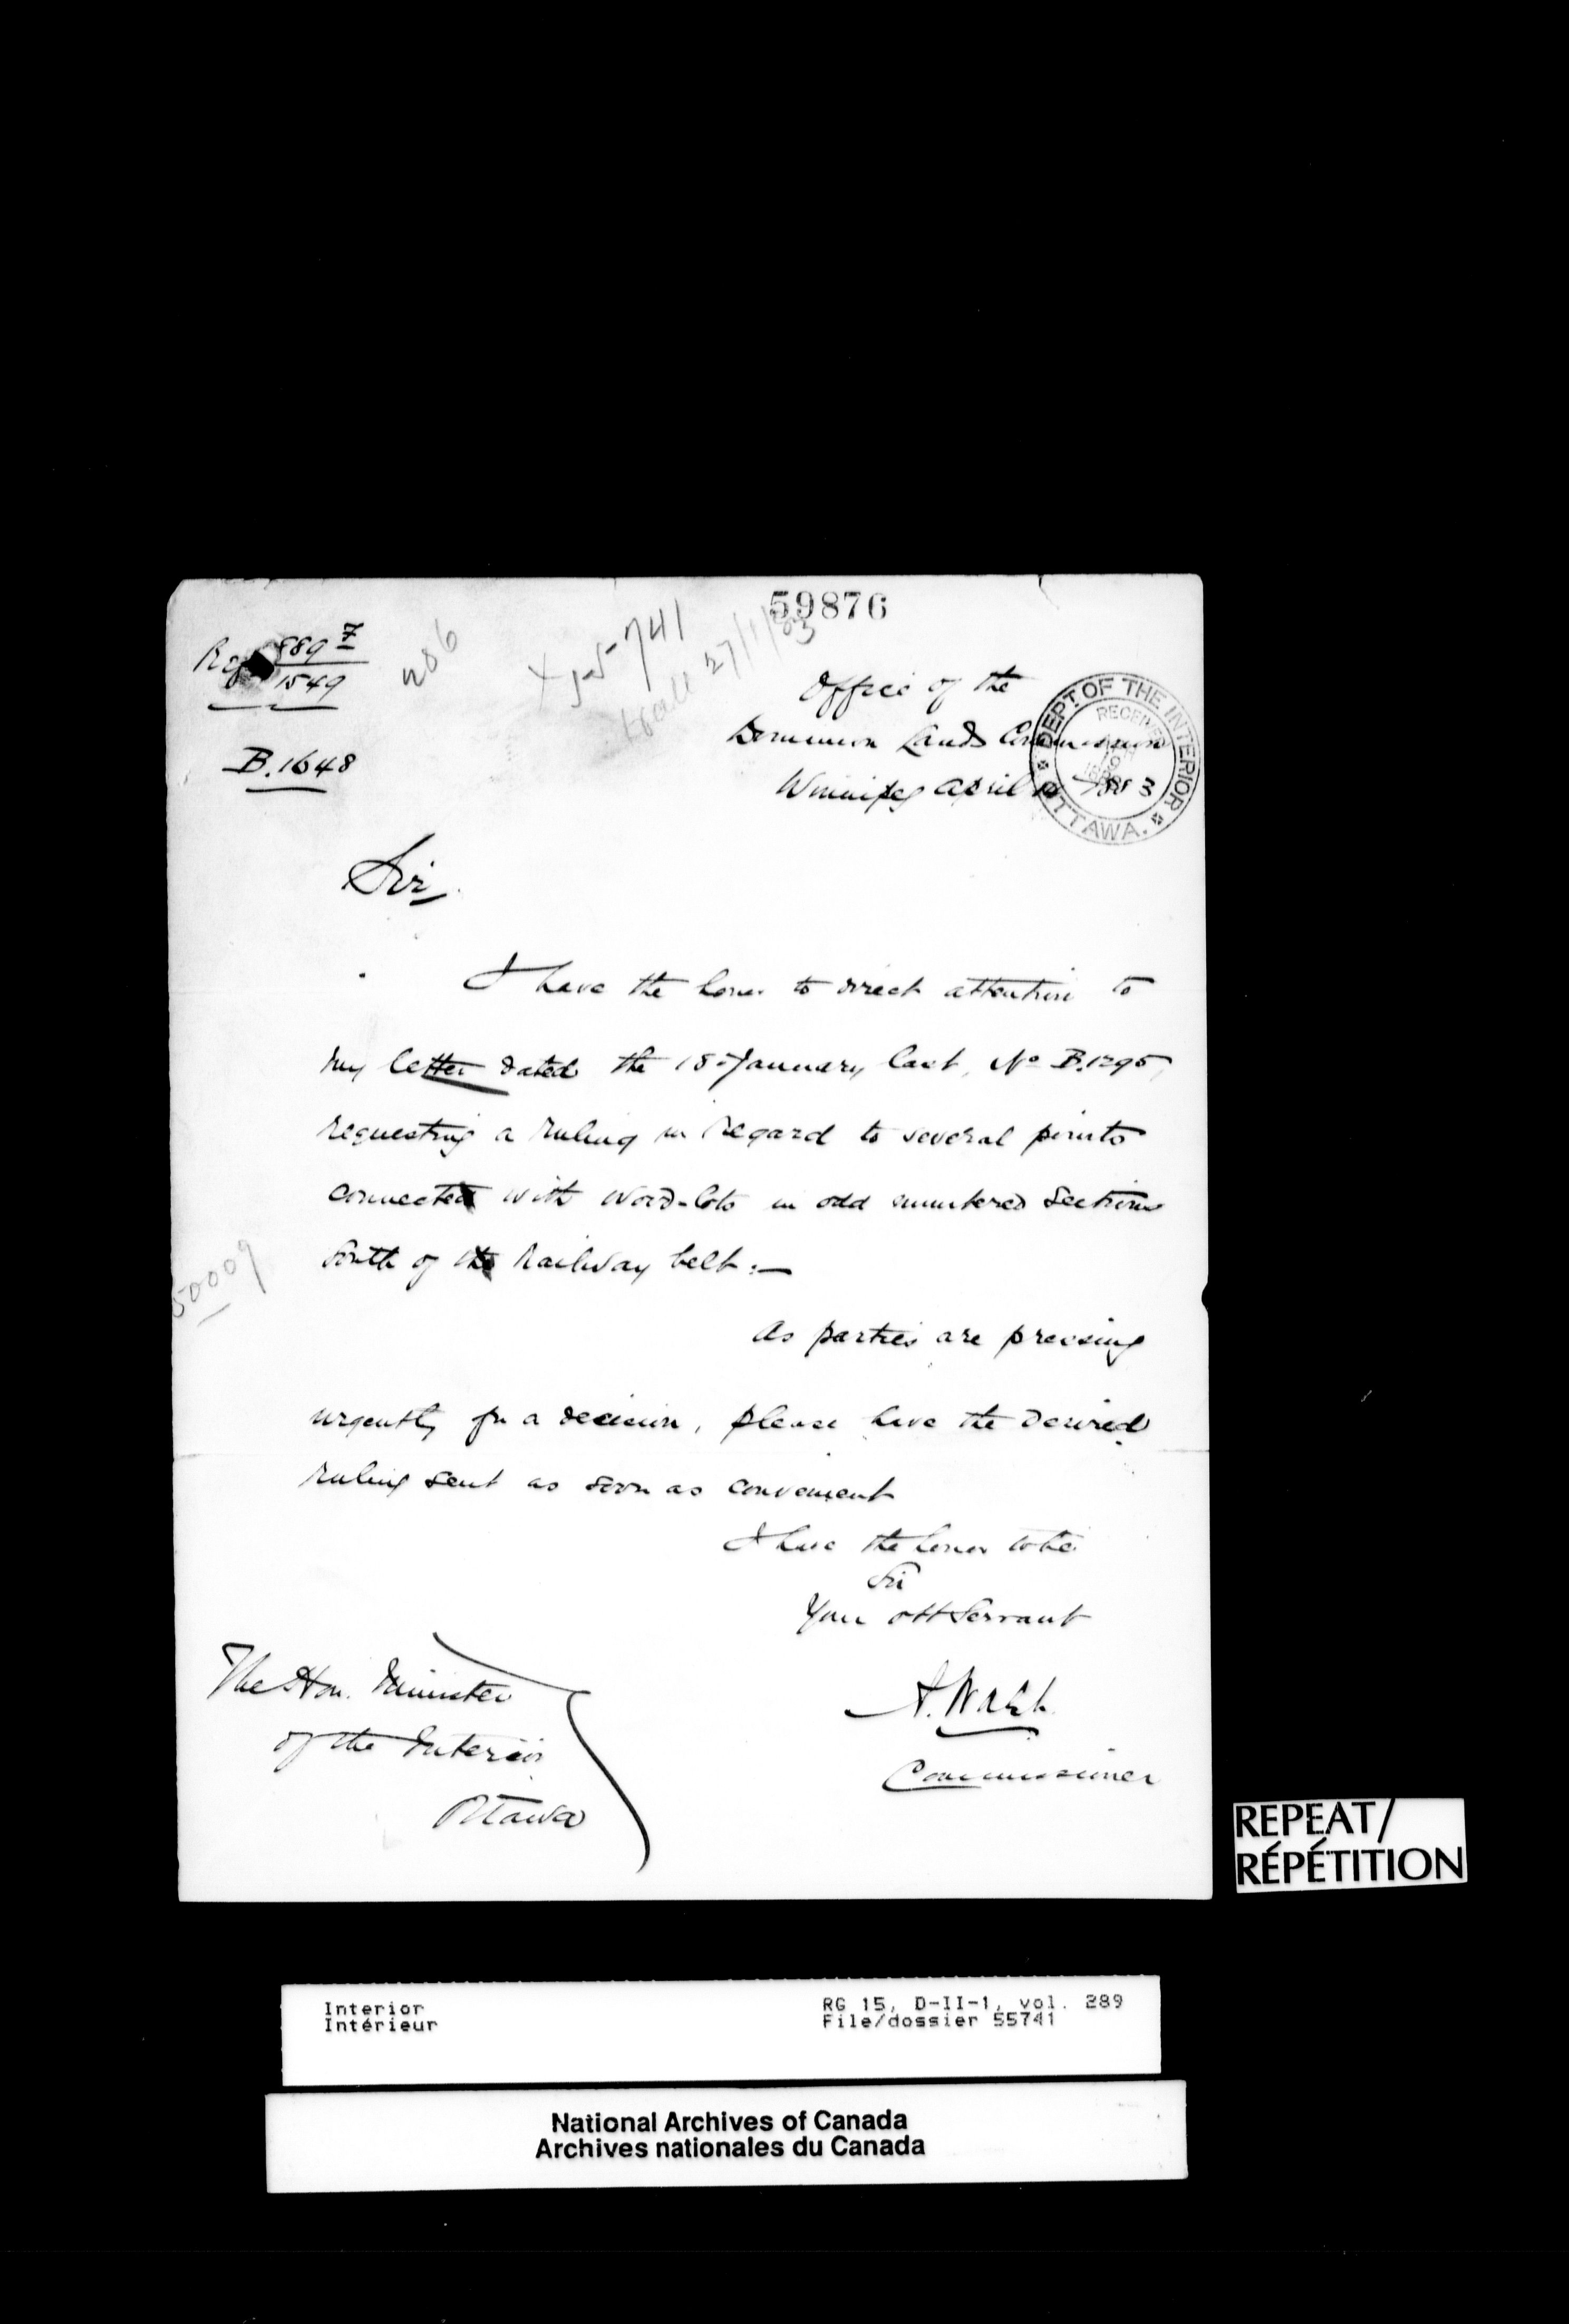 59876
Ref 889 7
1549
286
X 55741
27/1/83
B.1648
Office of the
Dominion Lands Commission
Winnipeg April 1883
DEPT. OF THE INTERIOR
RECEIVED
OTTAWA.
Sir,
I have the honor to direct attention to
my letter dated the 18 January last, No B.1295,
requesting a ruling in regard to several points
connected with Wood-lots in odd numbered sections
South of the Railway belt:—
50009
As parties are pressing
urgently for a decision, please have the desired
ruling sent as soon as convenient
I have the honor to be
Sir
Your obt Servant
A. Walsh
Commissioner
The Hon. Minister
of the Interior
Ottawa
REPEAT/
RÉPÉTITION
Interior
Intérieur
RG 15, D-II-1, vol. 289
File/dossier 55741
National Archives of Canada
Archives nationales du Canada